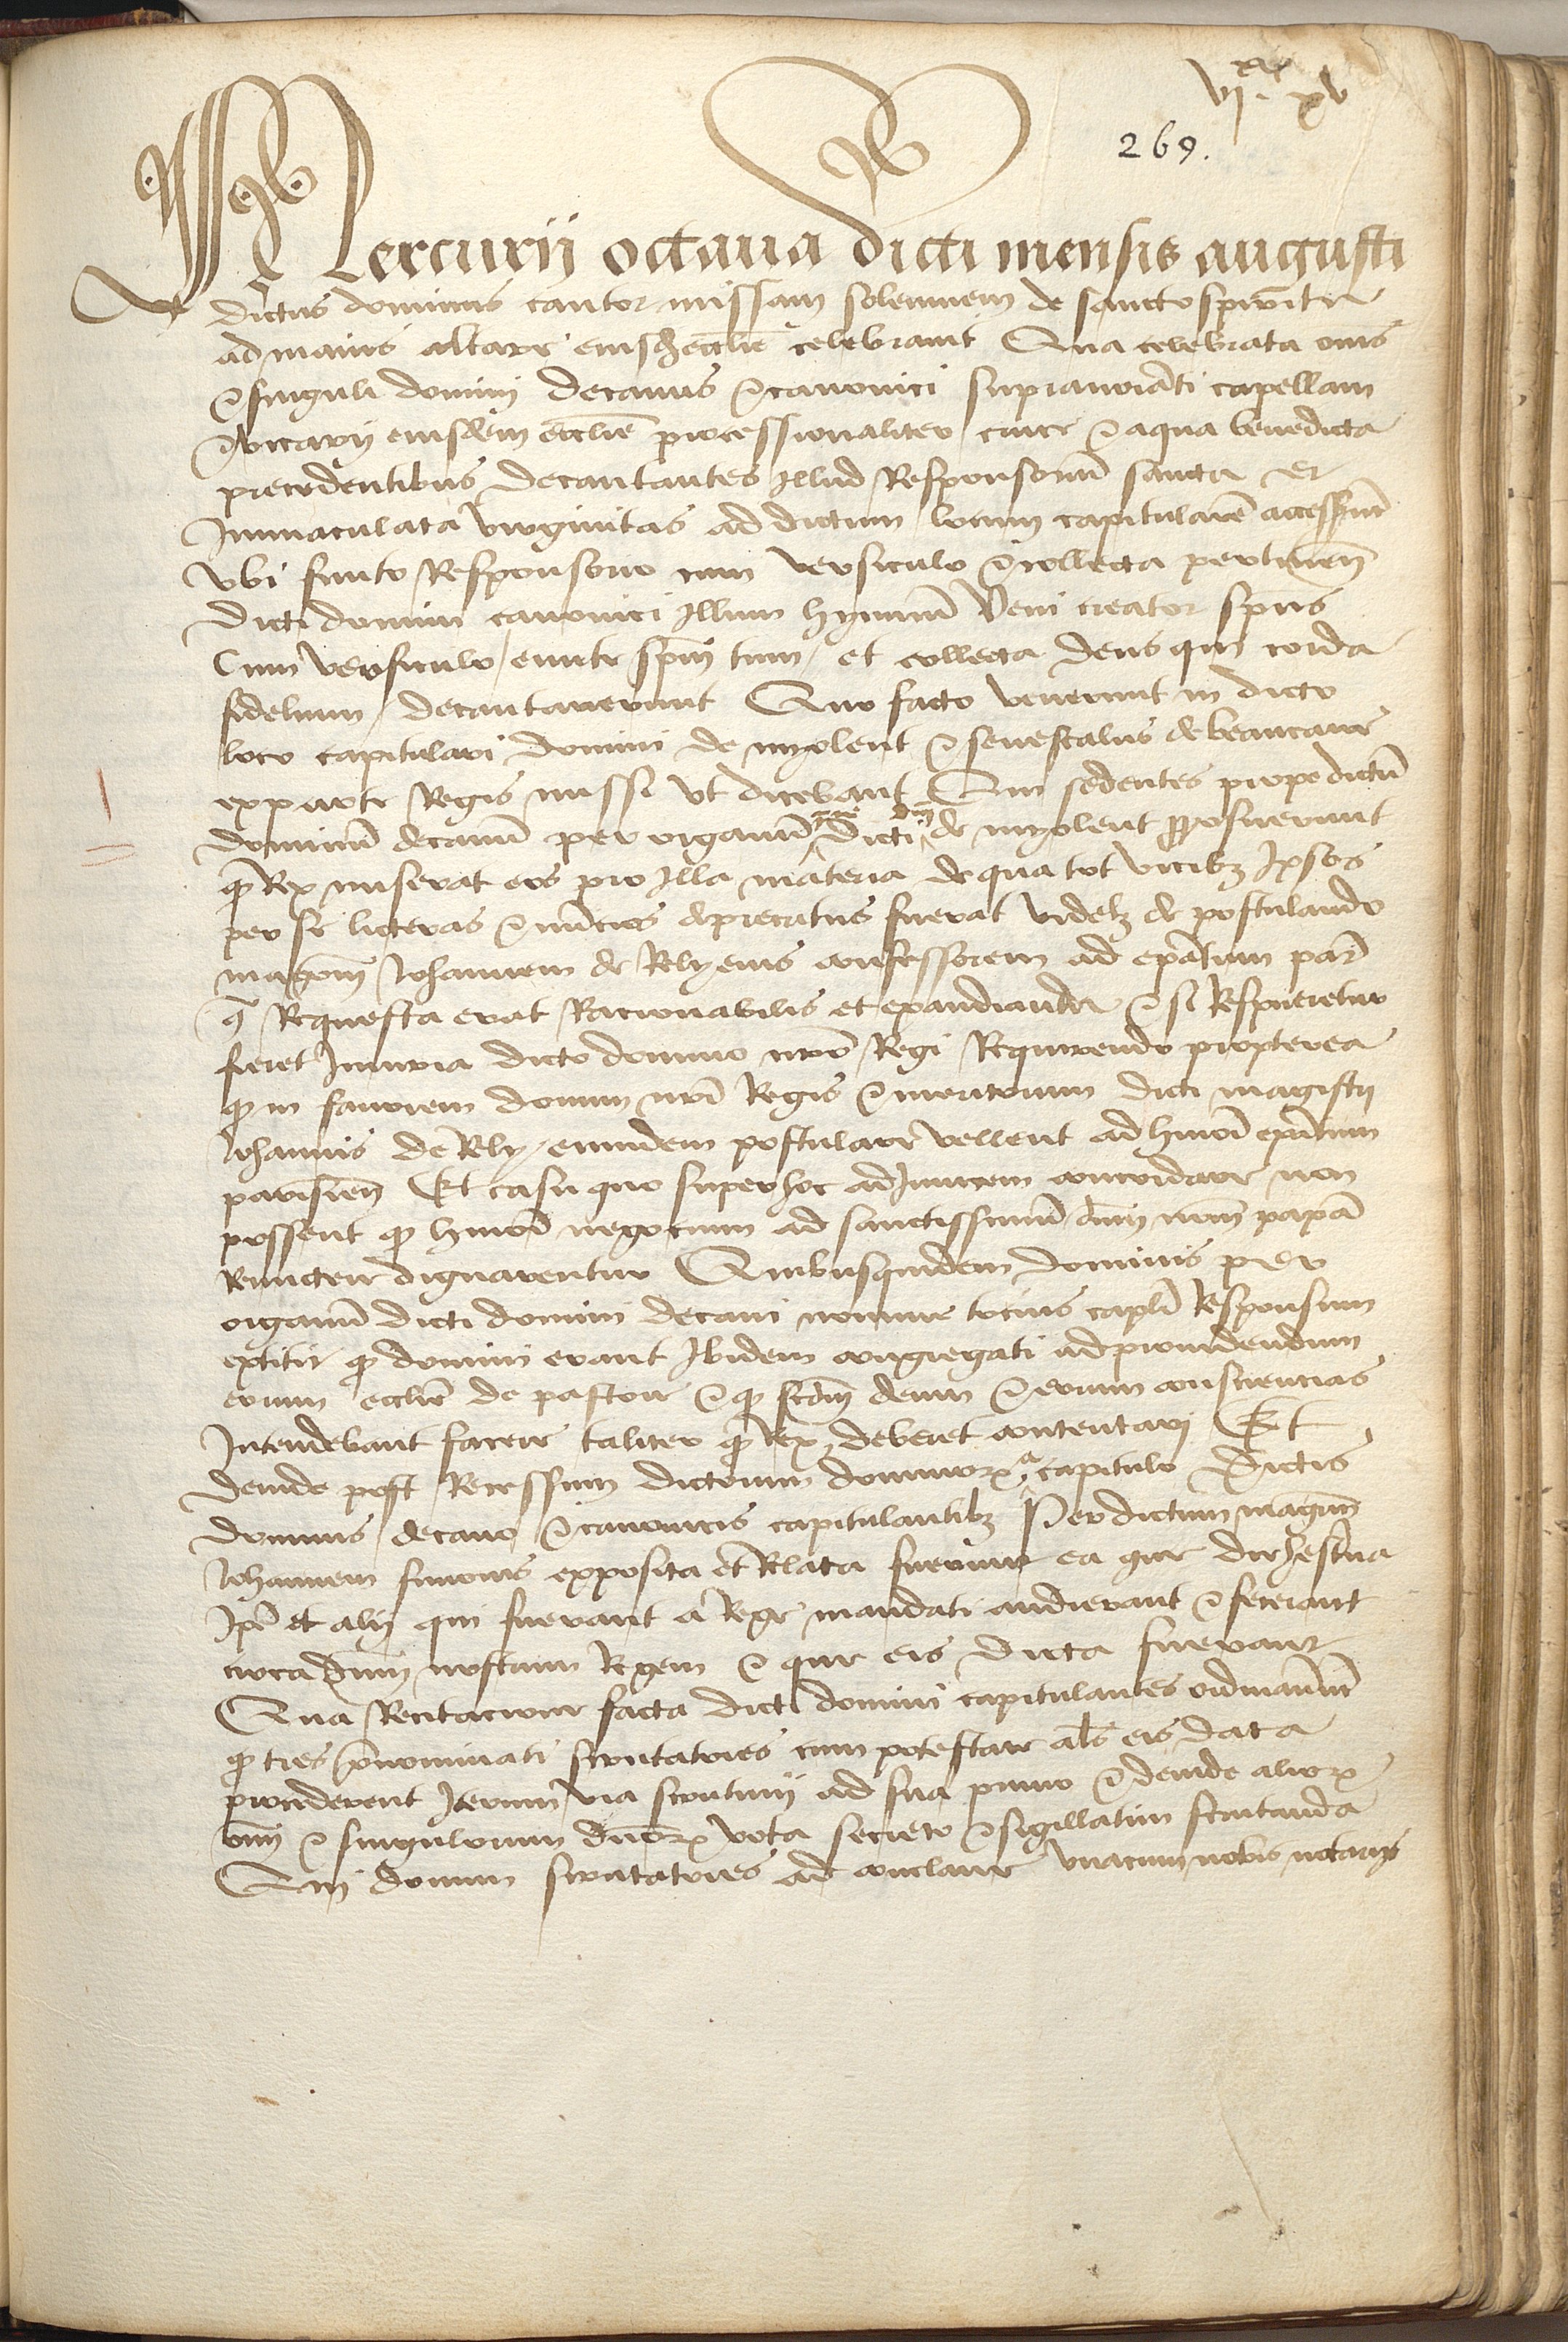 vi.xx xv
269.
Mercurii octava dicti mensis augusti
dictus dominus cantor missam solennem de sancto spiritu
ad maius altare eiusd ecclie celebravit Qua celebrata oms
& singuli domini decanus & canonici supranoiati capellani
& vicarij eiusdem ecclie processionaliter cruce & aqua benedicta
precedentibus decantantes illud Responsoriu sancta et
Immaculata virginitas ad dictum locum capitularē accesserūt
Vbi finito Responsorio cum versiculo & collecta pertineñ
dicti domini canonici Illum hymnū Veni creator spūs
Cum versiculo / emitte spm̄ tuum / et collecta deus qui corda
fidelium / decantaverunt Quo facto venerunt in dicto
loco capitulari domini de myolent & senescalus de beaucaire
ex parte Regis missi vt dicebant Qui sedentes prope dictū
dominū decanū per organū dicti dn̄i de myolent proposuerunt
q̄ Rex miserat eos pro Illa materia de qua tot vicibz Ipsos
per se licteras & nūcios deprecatus fuerat videlz de postulando
magr̄m Johannem de Rely eius confessorem ad ep̄atum par̄
q̄ Requesta erat Racionabilis et exaudianda & si Respueretur
fieret Iniuria dicto domino nr̄o Regi Requirendo propterea
q̄ in favorem domini nr̄i Regis & meritorum dicti magistri
Johannis de Rely / eumdem postulare vellent ad hmōi ep̄atum
parisieñ Et casu quo super hoc adInvicem concordare non
possent q̄ hmōi negocium ad sanctissimū dn̄m nr̄m papā
Remictere dignarentur Quibusquidem dominis per
organū dicti domini decani nomine tocius capl̄i Responsum
extitit q̄ domini erant Ibidem congregati ad providendum
eorum ecclīe de pastore & q̄ scd̄m deum & eorum consciencias
Intendebant facere taliter q̄ Rex deberet contentari Et
deinde post Recessum dictorum dominorꝝ a capitulo Dictis
dominis decano & canonicis capitulantibz Per dictum magr̄m
Johannem simonis exposita et Relata fuerunt ea que die hesterna
Ip̄e et alij qui fuerant a Rege mandati audierant & fecerant
circa dn̄m nostrum Regem & que eis dicta fuerant
Qua Recitacione facta dicti domini capitulantes ordinarūt
q̄ tres p̄nominati scrutatores cum potestate al̄s eis data
procederent Iterum via scrutinij ad sua primo & deinde aliorꝝ
om̄ & singulorum dn̄orꝝ vota secrete & sigillatim scrutanda
Qui domini scrutatores ad conclave vnacum nobis notarijs